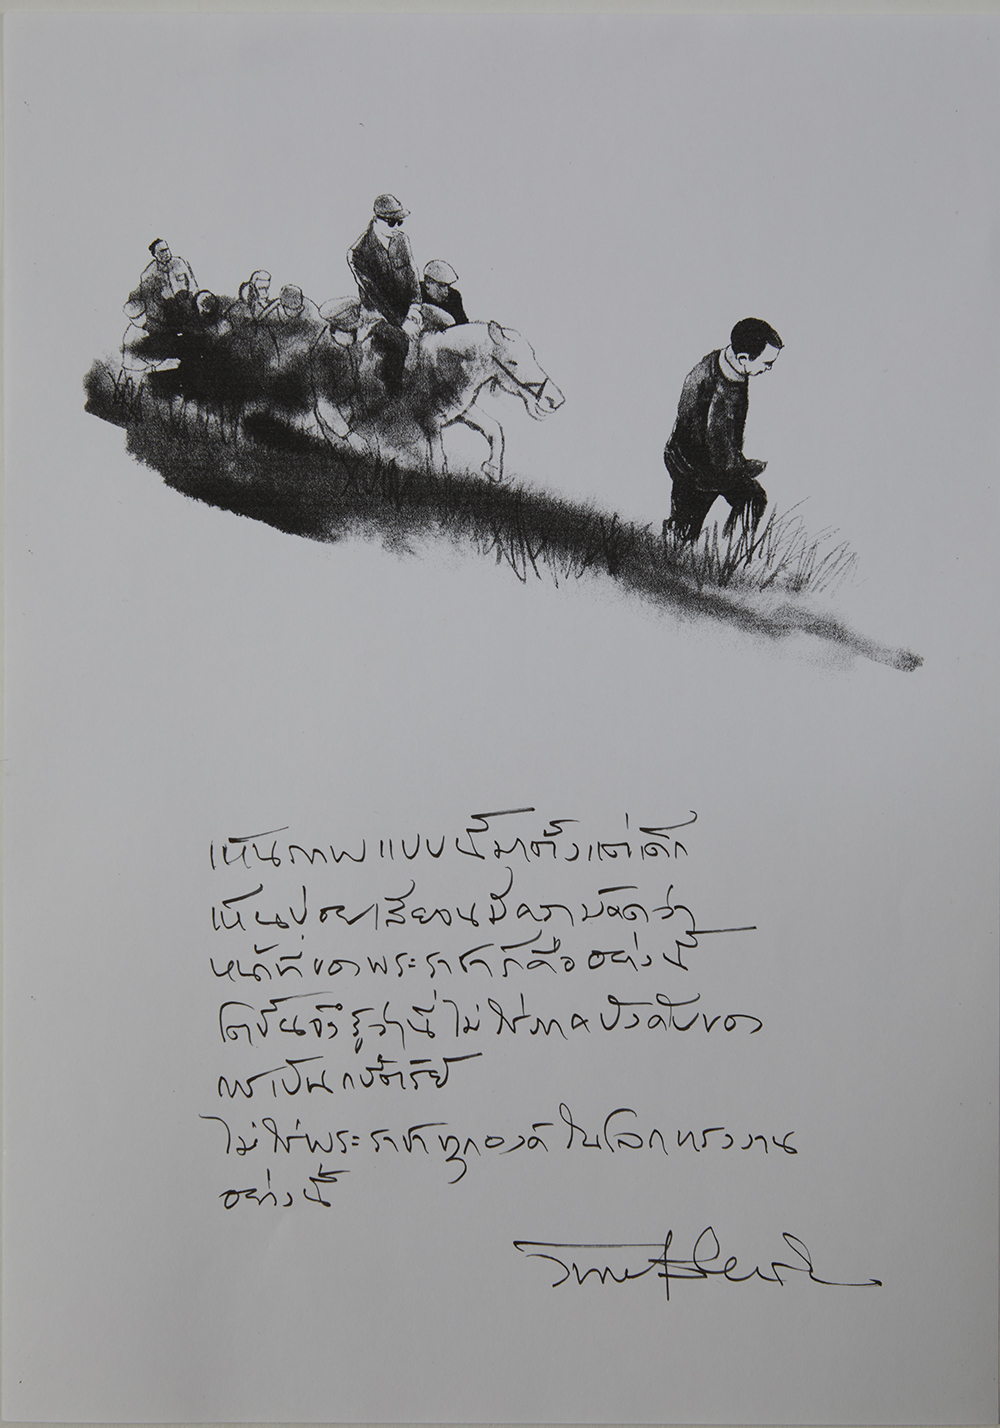 เห็นภาพแบบนี้มาตั้งแต่เด็ก
เห็นบ่อยเสียจนมีความคิดว่า
หน้าที่ของพระราชาก็คืออย่างนี้
โตขึ้นจึงรู้ว่านี่ไม่ใช่ภาคบังคับของ
การเป็นกษัตริย์
ไม่ใช่พระราชาทุกองค์ในโลกทรงงาน
อย่างนี้